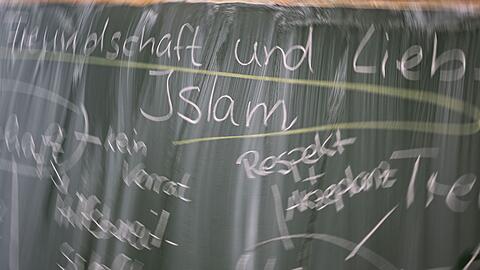 Freundschaft und Lieb
Islam
kein
Verrat
Respekt
+
Akzeptanz
Tre